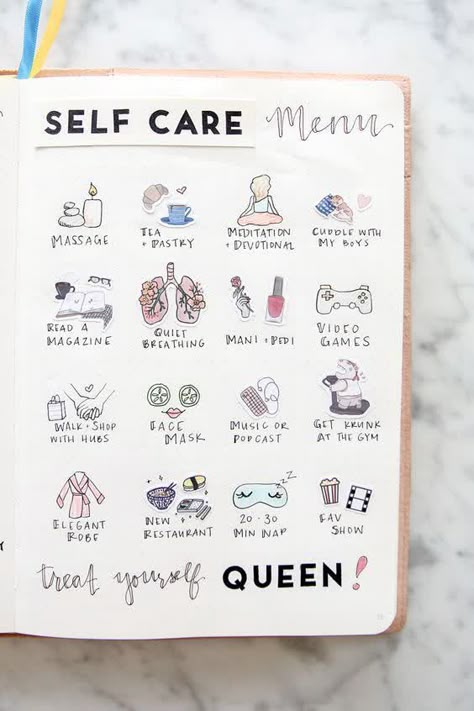 SELF CARE Menu
MASSAGE
TEA
+ PASTRY
MEDITATION
+ DEVOTIONAL
CUDDLE WITH
MY BOYS
READ A
MAGAZINE
QUIET
BREATHING
MANI + PEDI
VIDEO
GAMES
WALK + SHOP
WITH HUBS
FACE
MASK
MUSIC OR
PODCAST
GET KRUNK
AT THE GYM
ELEGANT
ROBE
NEW
RESTAURANT
zzz
20-30
MIN NAP
FAV
SHOW
treat yourself QUEEN!